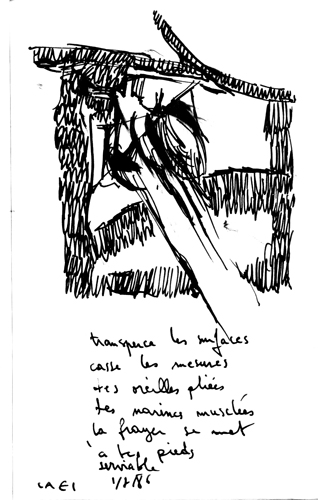 transperce les surfaces
casse les mesures
tes oreilles pliées
tes narines musclées
la frayeur se met
à tes pieds
serviable
LAEI 1/2 86